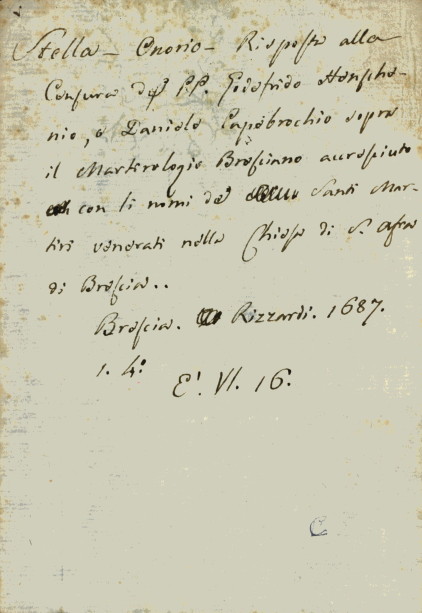 Stella - Onorio - Risposta alla
Censura de' PP. Godefrido Henscheˉ
nio, e Daniele Papebrochio sopra
il Martirologio Bresciano accresciuto
con li nomi de' Santi Mar-
tiri venerati nella Chiesa di S. Afra
di Brescia..
Brescia. Rizzardi. 1687.
1. 4º
E'. VI. 16.
C